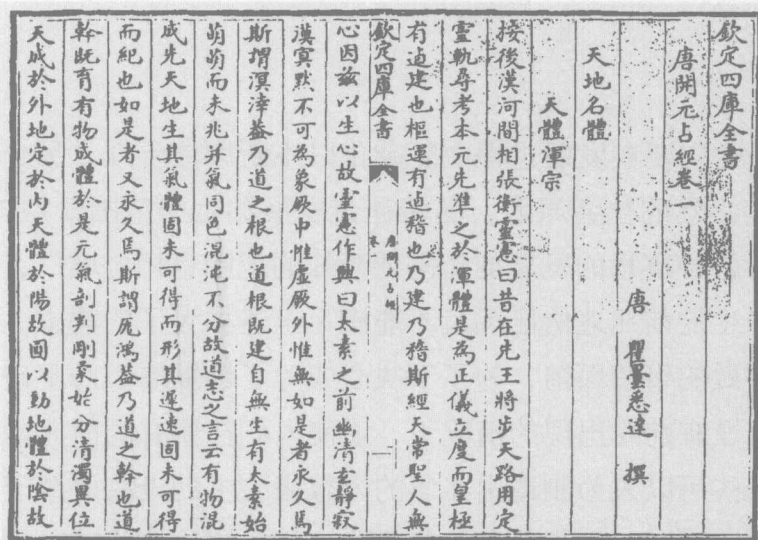 欽定四庫全書
唐開元占經卷一
唐 瞿曇悉達 撰
天地名體
天體渾宗
按後漢河間相張衡靈憲曰昔在先王將步天路用定
靈軌尋考本元先準之於渾體是為正儀立度而皇極
有逌建也樞運有逌稽也乃建乃稽斯經天常聖人無
欽定四庫全書
唐開元占經
卷一
一
心因兹以生心故靈憲作興曰太素之前幽清玄靜寂
漠冥默不可為象厥中惟虛厥外惟無如是者永久焉
斯謂溟涬葢乃道之根也道根既建自無生有太素始
萌萌而未兆并氣同色混沌不分故道志之言云有物混
成先天地生其氣體固未可得而形其遲速固未可得
而紀也如是者又永久焉斯謂厖鴻葢乃道之幹也道
幹既育有物成體於是元氣剖判剛柔始分清濁異位
天成於外地定於内天體於陽故圓以動地體於陰故